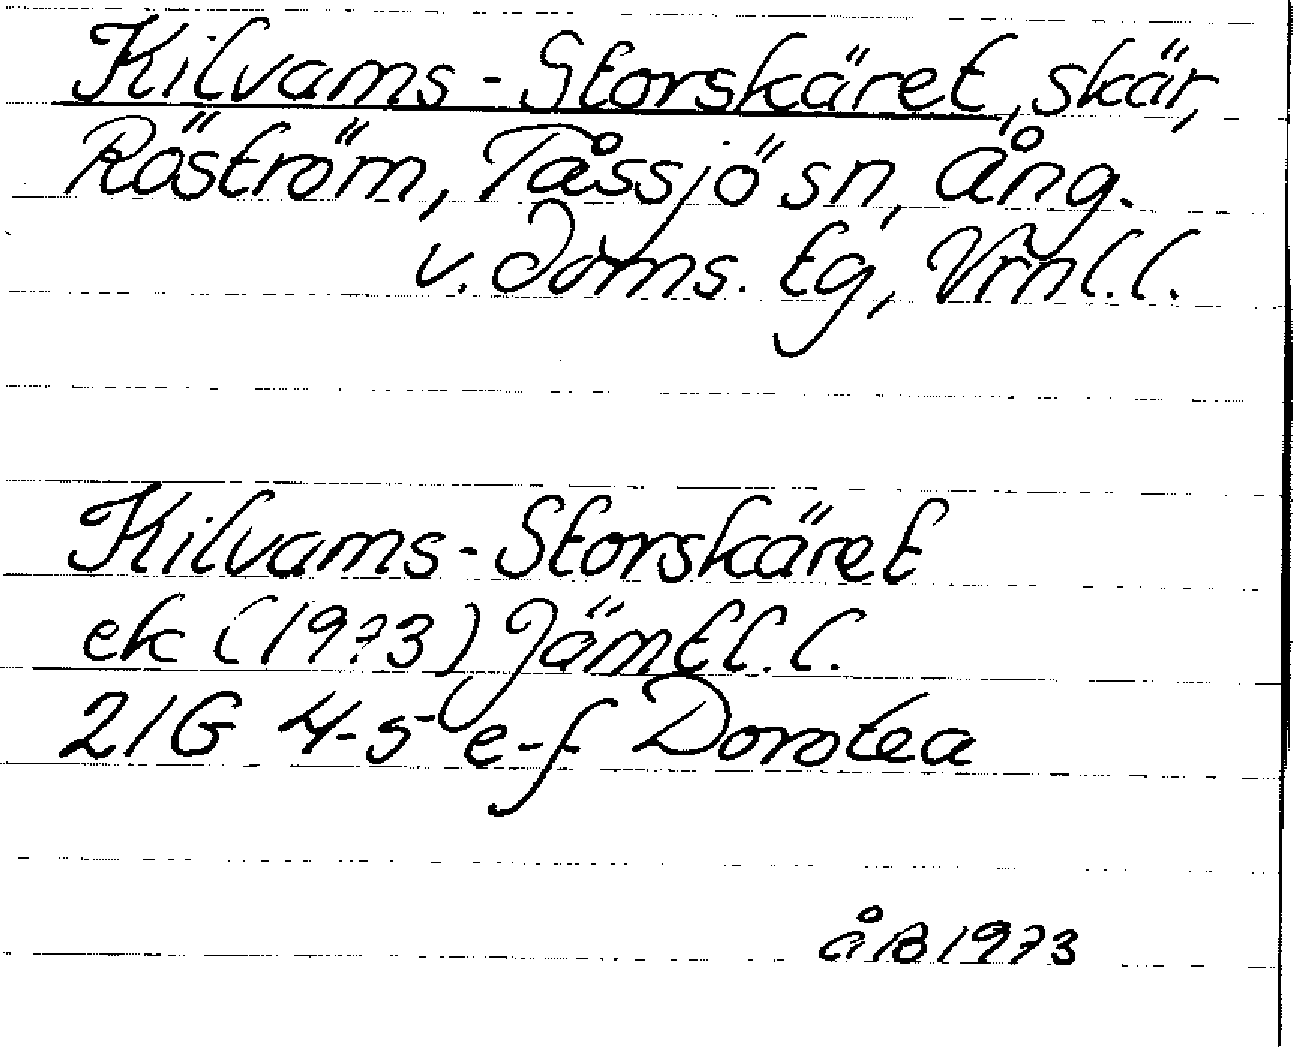 Kilvams-Storskäret, skär,
Röström, Tåssjö sn, Ång.
v. Doms. tg, Vrnl.l.
Kilvams-Storskäret
ek (1973) Jämtl.l.
21G 4-5 e-f Dorotea
åB 1973